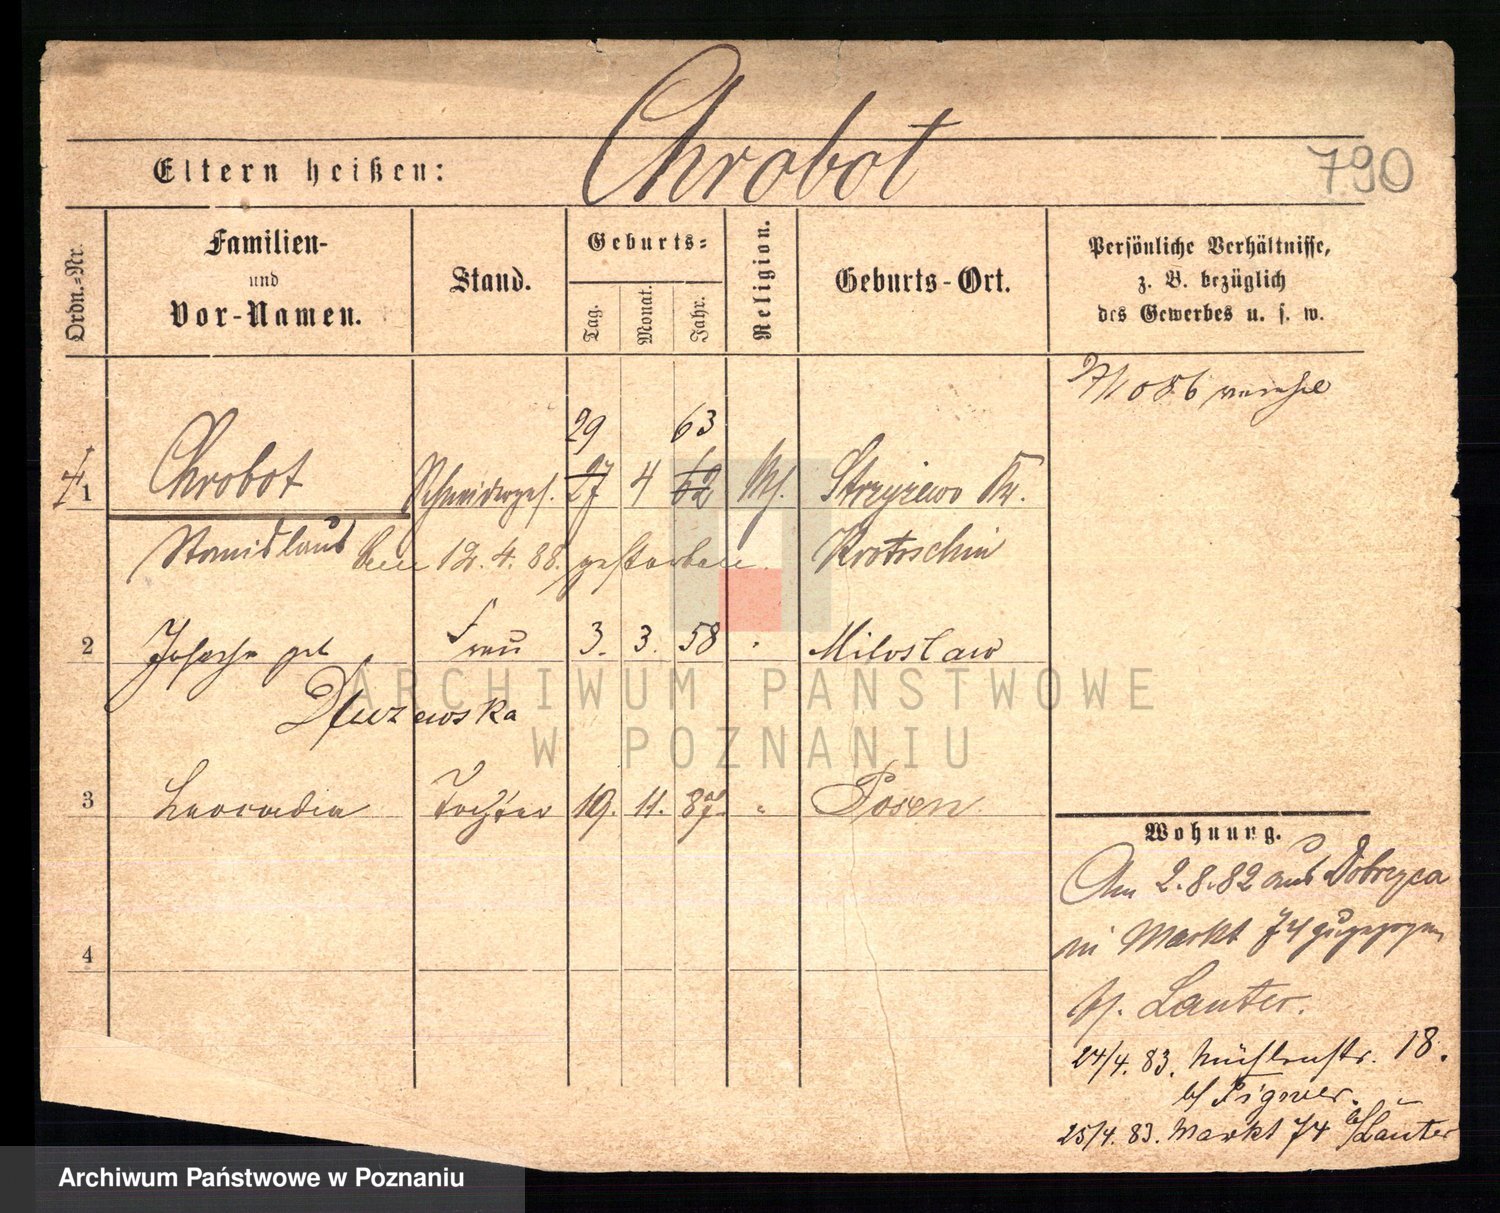 Chrobot
Eltern heißen:
790
Ordn.-Nr.
Familien-
und
Vor-Namen.
Stand.
Geburts-
Tag.
Monat.
Jahr.
Religion.
Geburts-Ort.
Persönliche Verhältnisse,
z. B. bezüglich
des Gewerbes u. s. w.
29 63
1 Chrobot Schneiderges. 27 4 62 Strzyzewo Kr.
Stanislaus 12. 4. 88. gestorben. Krotoschin
2 Josepha geb Frau 3. 3. 58 " Miloslaw
Dluzewska
3 Leocadia Tochter 19. 11. 87. " Posen.
4
Wohnung.
Am 2.8.82 aus Dobrzyca
in Markt 74 zugezogen
b/. Lauter.
24/4. 83. Mühlenstr. 18.
b/ Pigner.
25/4. 83. Markt 74 b/Lauter
ARCHIWUM PAŃSTWOWE
W POZNANIU
Archiwum Państwowe w Poznaniu